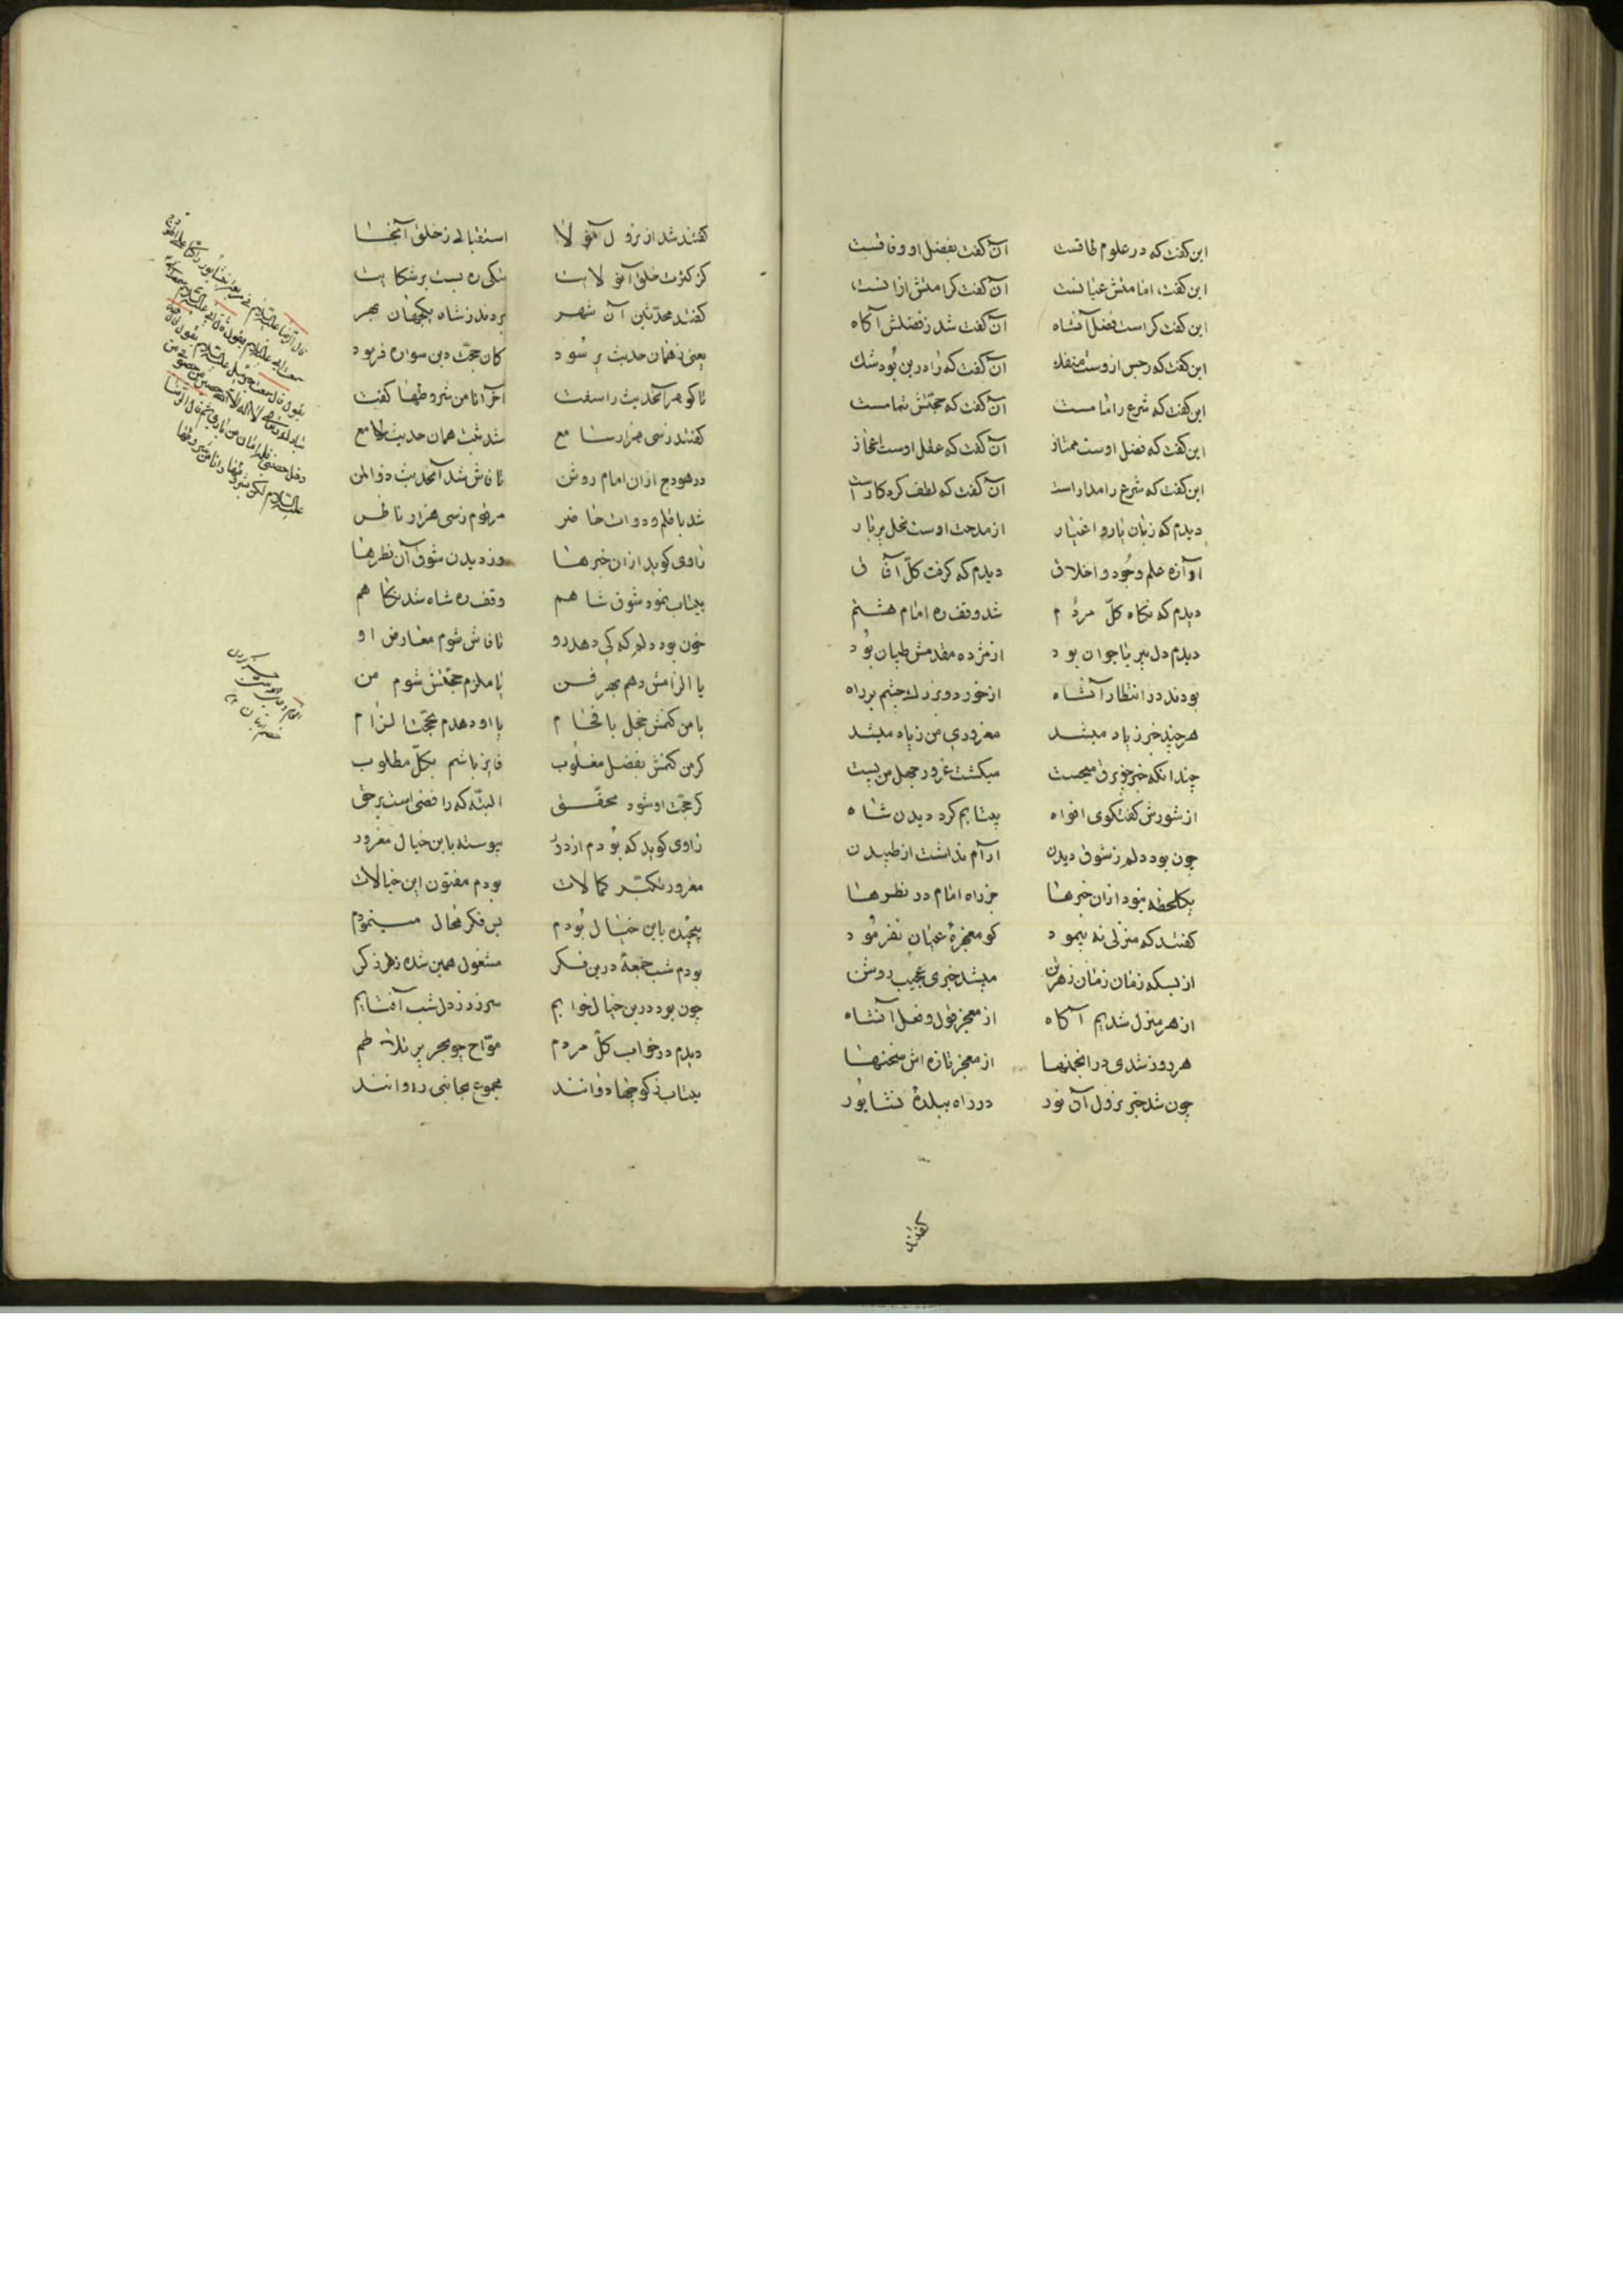 این گفت که در علوم طاقست آن گفت بفضل او وفاقست
این گفت امامتش عیانست آن گفت کرامتش ازانست
این گفت کراست فضل آنشاه آن گفت شد ز فضلش آگاه
این گفت که رجس ازوست منفک آن گفت که را درین بود شک
این گفت که شرع را امامست آن گفت که حجتش تمامست
این گفت که فضل اوست ممتاز آن گفت که عقل اوست اعجاز
این گفت که شرع را مدارست آن گفت که لطف کردکارست
دیدم که زبان یار و اغیار از مدحت اوست نخل پربار
آوازه علم وجود و اخلاق دیدم که گرفت کل آفاق
دیدم که نگاه کل مردم شد وقف ره امام هشتم
دیدم دل پیر یا جوان بود از مژده مقدمش طپان بود
بودند در انتظار آنشاه از خورد و بزرگ چشم بر راه
هرچند خبر زیاد میشد مغروری من زیاد میشد
چندانکه خبر چو برق میجست میکشت غرور جهل من پست
از شورش گفتگوی افواه بیتابم کرد دیدن شاه
چون بود دلم ز شوق دیدن آرام نداشت از طپیدن
یکلحظه نبود ازان خبرها جز راه امام در نظرها
گفتند که منزلی نه پیمود کو معجزهٔ عیان نفرمود
از بسکه زمان زمان ز هرتن میشد خبری عجیب روشن
از هر منزل شدیم آگاه از معجز قول و فعل آنشاه
هر روز شدی در انجمنها از معجز تازه اش سخنها
چون شد خبر نزول آن نور در راه ببلدهٔ نشابور
گفتند
گفتند شد از نزول مولا استقبالی ز خلق آنجا
کز کثرت خلق آن ولایت تنگی ره بست بر شکایت
گفتند محدثین آن شهر بردند ز شاه بیکران بهر
یعنی ز همان حدیث پر سود کان حجت دین سواره فرمود
تا گوهر آنحدیث را سفت آخر آنا من شروطها گفت
گفتند ز سی هزار سامع شد ثبت همان حدیث لامع
در هودج ازان امام روشن تا فاش شد آنحدیث ذوالمن
شد با قلم و دوات حاضر مرقوم ز سی هزار ناظر
راوی گوید ازان خبرها وز دیدن شوق آن نظرها
بیتاب نمود شوق شاهم وقف ره شاه شد نگاهم
خون بود دلم که کی دهد رو تا فاش شوم معارض او
یا الزامش دهم بهر فن یا ملزم حجتش شوم من
یا من کنمش خجل بافحام یا او دهدم بحجت الزام
گر من کنمش بفضل مغلوب فایز باشم بکل مطلوب
گر حجت او شود محقق البته که رافضی است بر حق
راوی گوید که بودم از دور پیوسته باین خیال مغرور
مغرور تکبر کمالات بودم مفتون این خیالات
پیچیده باین خیال بودم بس فکر محال مینمودم
بودم شب جمعهٔ درین فکر مشغول همین شده ز هر ذکر
چون بود درین خیال خوابم سر زد ز دل شب آفتابم
دیدم در خواب کل مردم مواج چو بحر پر تلاطم
بیتاب ز کوچها دوانند مجموع بجانبی روانند
قال الرضا علیه السلام
سمعت ابی علیه السلام یقول
یقول قال سمعت جبرئیل علیه السلام یقول
لا اله الا الله حصنی
دخل حصنی امن من
علیه السلام لکن بشروطها وانا من شروطها